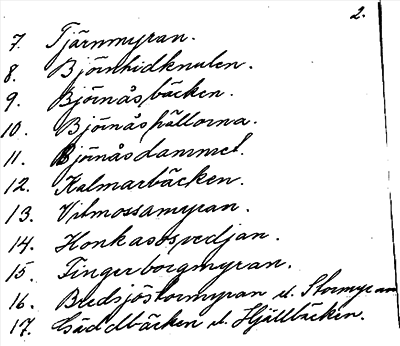 2.
7. Tjärnmyran.
8. Björnhidknulen.
9. Björnåsbäcken.
10. Björnåshällorna.
11. Björnåsdammet.
12. Kalmarbäcken.
13. Vitmossamyran.
14. Honkasosvedjan.
15. Fingerborgmyran.
16. Bredsjöstormyran u. Stormyran
17. Gäddbäcken u. Hjällbäcken.